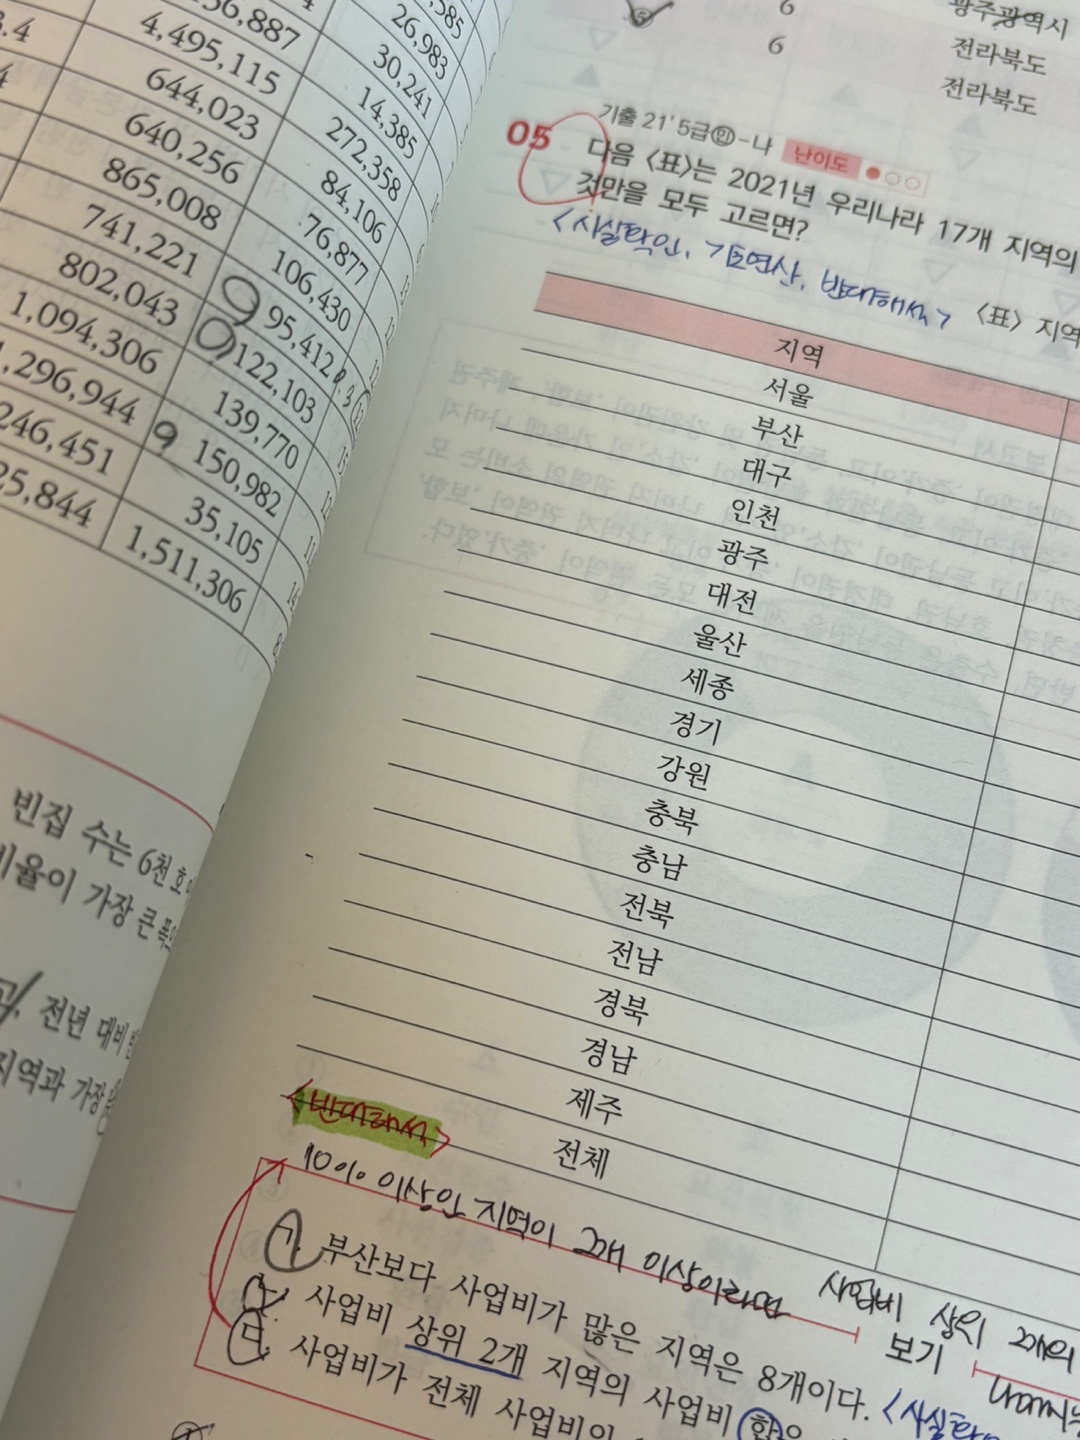 3.4
4,495,115
26,983
644,023
30,241
640,256
14,385
865,008
272,358
741,221
84,106
802,043
76,877
1,094,306
106,430
95,412
122,103
139,770
150,982
35,105
1,511,306
빈집 수는 6천 호
비율이 가장 큰 폭
전년 대비
지역과 가장
6
광주광역시
6
전라북도
전라북도
기출 21' 5급㉑-나 난이도 ●○○
05 다음 〈표〉는 2021년 우리나라 17개 지역의
것만을 모두 고르면?
<사실확인, 기초연산, 반대해석>
〈표〉 지역
지역
서울
부산
대구
인천
광주
대전
울산
세종
경기
강원
충북
충남
전북
전남
경북
경남
제주
전체
<반대해석>
10% 이상인 지역이 2개 이상이라면 사업비 상위 2개의
보기
ㄱ. 부산보다 사업비가 많은 지역은 8개이다. <사실확
ㄴ. 사업비 상위 2개 지역의 사업비 합은
ㄷ. 사업비가 전체 사업비의